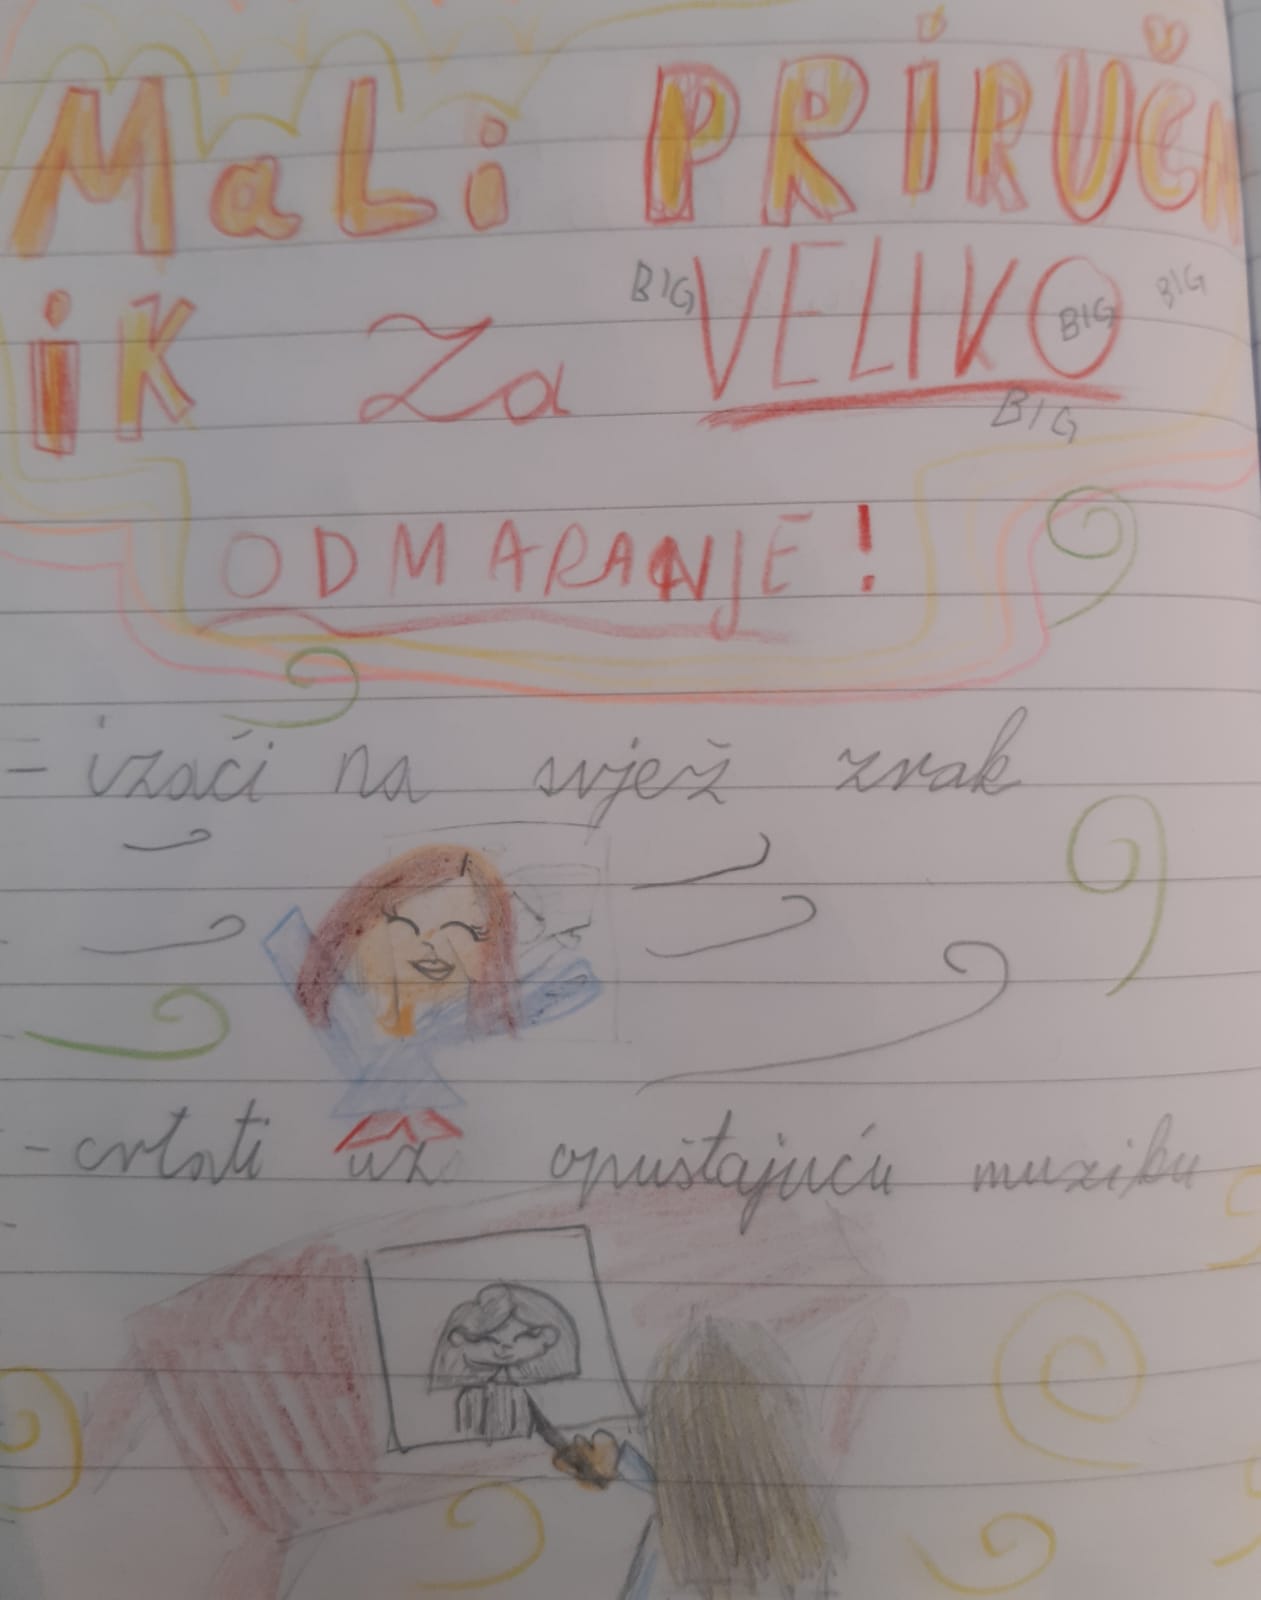 MaLi PRIRUČN
iK Za BIG VELIKO BIG BIG
BIG
ODMARANJE!
= izaći na svjež zrak
- crtati uz opuštajuću muziku